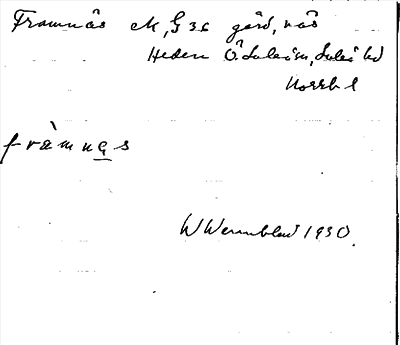 Framnäs ek, G 36 gård, näs
Heden Ö. Luleå sn, Luleå hd
Norrb l
fràmnęs
W Wennblad 1930.